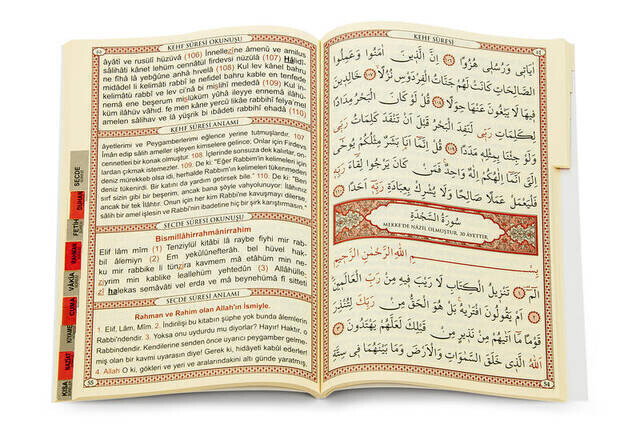 KEHF SÛRESİ OKUNUŞU
âyâtî ve rusulî hüzüvâ (106) İnnellezîne âmenû ve amilus
sâlihâti kânet lehüm cennâtül firdevsi nüzülâ (107) Hâlidî-
ne fîhâ lâ yebğûne anhâ hıvelâ (108) Kul lev kânel bahru
midâdel li kelimâti rabbî le nefidel bahru kable en tenfede
kelimâtü rabbî ve lev ci'nâ bi mislihî mededâ (109) Kul in-
nemâ ene beşerum mislüküm yûhâ ileyye ennemâ ilâhü-
küm ilâhüv vâhid, fe men kâne yercû likâe rabbihî felya'mel
amelen sâlihav ve lâ yüşrik bi ıbâdeti rabbihî ehadâ (110)
KEHF SÛRESİ ANLAMI
âyetlerimi ve Peygamberlerimi eğlence yerine tutmuşlardır. 107
İman edip sâlih ameller işleyen kimselere gelince; Onlar için Firdevs
cennetleri bir konak olmuştur. 108. İçlerinde sonsuza dek kalırlar, on-
lardan çıkmak istemezler. 109. De ki: "Eğer Rabbim'in kelimeleri için
deniz mürekkeb olsa idi, herhalde Rabbim'in kelimeleri tükenmeden
deniz tükenirdi. Bir katını da yardım getirsek bile." 110. De ki: "Ben
sırf sizin gibi bir beşerim, ancak bana şöyle vahyolunuyor: İlâhınız
ancak bir tek İlâhtır. Onun için her kim Rabbi'ne kavuşmayı dilerse,
sâlih bir amel işlesin ve Rabbi'nin ibadetine hiç bir şirk karıştırmasın."
SECDE SÛRESİ OKUNUŞU
Bismillâhirrahmânirrahim
Elif lâm mîm (1) Tenziylül kitâbi lâ raybe fiyhi mir rab-
bil âlemiyn (2) Em yekûlûnefterâh, bel hüvel hak-
ku mir rabbike li tünzira kavmem mâ etâhüm min ne-
ziyrim min kablike leallehüm yehtedûn (3) Allâhülle-
zî halekas semâvâti vel erda ve mâ beynehümâ fî sitteti
SECDE SÛRESİ ANLAMI
Rahman ve Rahim olan Allah'ın İsmiyle.
1. Elif, Lâm, Mîm. 2. İndirilişi bu kitabın şüphe yok bunda âlemlerin
Rabbi'ndendir. 3. Yoksa onu uydurdu mu diyorlar? Hayır! Haktır, o
Rabbindendir. Kendilerine senden önce uyarıcı peygamber gelme-
miş olan bir kavmi uyarasın diye! Gerek ki, hidâyeti kabûl ederler!
4. Allah O ki, gökleri ve yeri ve aralarındakini altı günde yaratmış,
SECDE
DUHAN
FETİH
RAHMAN
VÂKIA
CUMA
KIYAME
KISA
KEHF SÛRESİ
اٰيَاتٖي وَرُسُلٖي هُزُوًا ﴿١٠٦﴾ اِنَّ الَّذٖينَ اٰمَنُوا وَعَمِلُوا
الصَّالِحَاتِ كَانَتْ لَهُمْ جَنَّاتُ الْفِرْدَوْسِ نُزُلًا ﴿١٠٧﴾ خَالِدٖينَ
فٖيهَا لَا يَبْغُونَ عَنْهَا حِوَلًا ﴿١٠٨﴾ قُلْ لَوْ كَانَ الْبَحْرُ مِدَادًا
لِكَلِمَاتِ رَبّٖي لَنَفِدَ الْبَحْرُ قَبْلَ اَنْ تَنْفَدَ كَلِمَاتُ رَبّٖي
وَلَوْ جِئْنَا بِمِثْلِهٖ مَدَدًا ﴿١٠٩﴾ قُلْ اِنَّمَا اَنَا بَشَرٌ مِثْلُكُمْ يُوحٰى
اِلَيَّ اَنَّمَا اِلٰهُكُمْ اِلٰهٌ وَاحِدٌ فَمَنْ كَانَ يَرْجُوا لِقَاءَ رَبِّهٖ
فَلْيَعْمَلْ عَمَلًا صَالِحًا وَلَا يُشْرِكْ بِعِبَادَةِ رَبِّهٖ اَحَدًا ﴿١١٠﴾
سُورَةُ السَّجْدَةِ
MEKKE'DE NÂZİL OLMUŞTUR. 30 ÂYETTİR.
بِسْمِ اللّٰهِ الرَّحْمٰنِ الرَّحٖيمِ
الٓمٓ ﴿١﴾ تَنْزٖيلُ الْكِتَابِ لَا رَيْبَ فٖيهِ مِنْ رَبِّ الْعَالَمٖينَ ﴿٢﴾
اَمْ يَقُولُونَ افْتَرٰيهُ بَلْ هُوَ الْحَقُّ مِنْ رَبِّكَ لِتُنْذِرَ
قَوْمًا مَا اَتٰيهُمْ مِنْ نَذٖيرٍ مِنْ قَبْلِكَ لَعَلَّهُمْ يَهْتَدُونَ ﴿٣﴾
اَللّٰهُ الَّذٖي خَلَقَ السَّمٰوَاتِ وَالْاَرْضَ وَمَا بَيْنَهُمَا فٖي سِتَّةِ